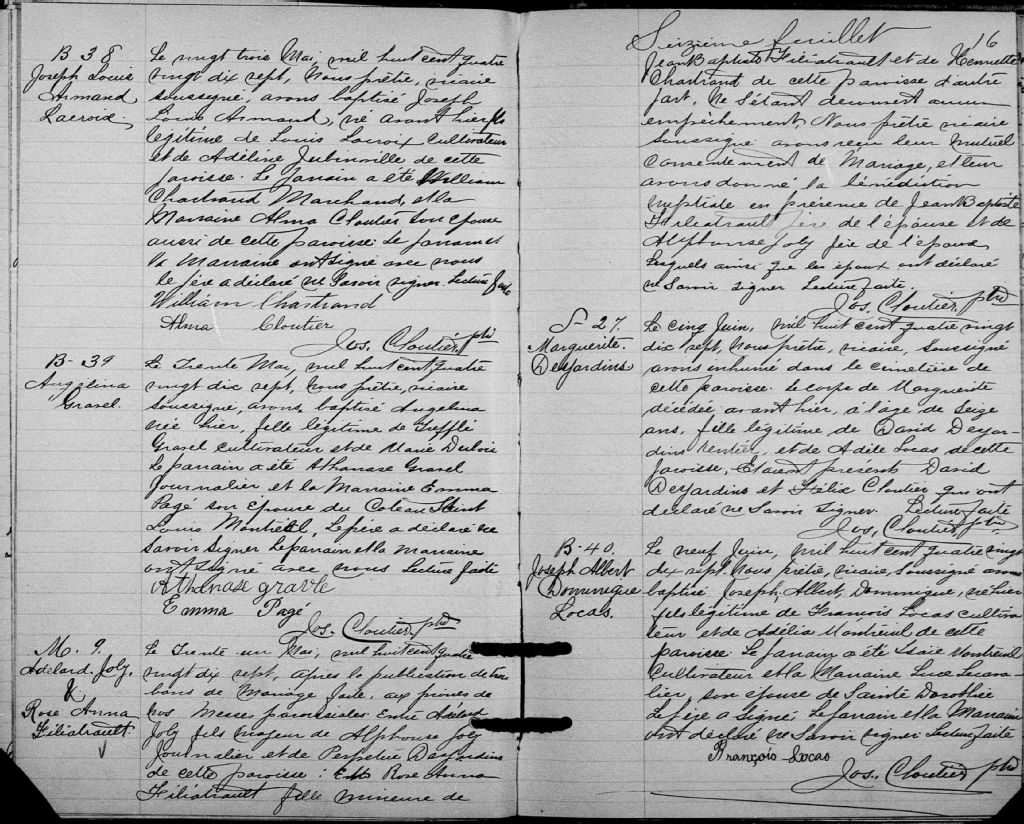 B 38
Joseph Louis
Armand
Lacroix.
Le vingt trois Mai, mil huit cent quatre
vingt dix sept, Nous prêtre, vicaire
soussigné, avons baptisé Joseph
Louis Armand, né avant hier fils
légitime de Louis Lacroix Cultivateur
et de Adéline Jubinville de cette
paroisse. Le parrain a été William
Chartrand Marchand, et la
Marraine Alma Cloutier son épouse
aussi de cette paroisse. Le parrain et
la Marraine ont signé avec nous
le père a déclaré ne savoir signer. Lecture faite
William Chartrand
Alma Cloutier
Jos. Cloutier, ptre
B- 39
Angelina
Gravel.
Le Trente Mai, mil huit cent quatre
vingt dix sept, nous prêtre, vicaire
soussigné, avons baptisé Angelina
née hier, fille légitime de Trefflé
Gravel cultivateur et de Marie Dubois
Le parrain a été Athanase Gravel
Journalier et la Marraine Emma
Pagé son épouse du Coteau Saint
Louis Montréal, Le père a déclaré ne
savoir signer Le parrain et la Marraine
ont signé avec nous Lecture faite
Athanase gravle
Emma Pagé
Jos. Cloutier, ptre
M. 9.
Adélard Joly.
&
Rose Anna
Filiatrault
Le Trente un Mai, mil huit cent quatre
vingt dix sept, après la publication de trois
bans de Mariage faite aux prônes de
nos Messes paroissiales Entre Adélard
Joly fils majeur de Alphonse Joly
Journalier et de Perpétue Desjardins
de cette paroisse : Et Rose Anna
Filiatrault fille mineure de
Seizième feuillet 16
Jean Baptiste Filiatrault et de Henriette
Chartrand de cette paroisse d'autre
part. Ne s'étant découvert aucun
empêchement, Nous prêtre vicaire
soussigné avons reçu leur mutuel
Consentement de Mariage, et leur
avons donné la bénédiction
nuptiale en présence de Jean Baptiste
Filiatrault père de l'épouse et de
Alphonse Joly père de l'époux
Lesquels ainsi que les époux ont déclaré
ne savoir signer Lecture faite.
Jos. Cloutier, ptre
S- 27.
Marguerite
Desjardins
Le cinq Juin, mil huit cent quatre vingt
dix sept, Nous prêtre, vicaire, soussigné
avons inhumé dans le cimetière de
cette paroisse. Le corps de Marguerite
décédée avant hier, à l'âge de Seize
ans, fille légitime de David Desjar-
dins rentier, et de Adèle Locas de cette
paroisse, Etaient présents David
Desjardins et Félix Cloutier qui ont
déclaré ne savoir signer. Lecture faite
Jos. Cloutier ptre
B- 40.
Joseph Albert
Dominique
Locas.
Le neuf Juin, mil huit cent quatre vingt
dix sept. Nous prêtre, vicaire, soussigné avons
baptisé Joseph, Albert, Dominique, né hier
fils légitime de François Locas cultiva-
teur et de Adélia Montreuil de cette
paroisse Le parrain a été Isaïe Montreuil
Cultivateur et la Marraine Luce Lecava-
lier, son épouse de Sainte Dorothée
Le père a signé, Le parrain et la Marraine
ont déclaré ne savoir signer Lecture faite
François Locas
Jos. Cloutier ptre